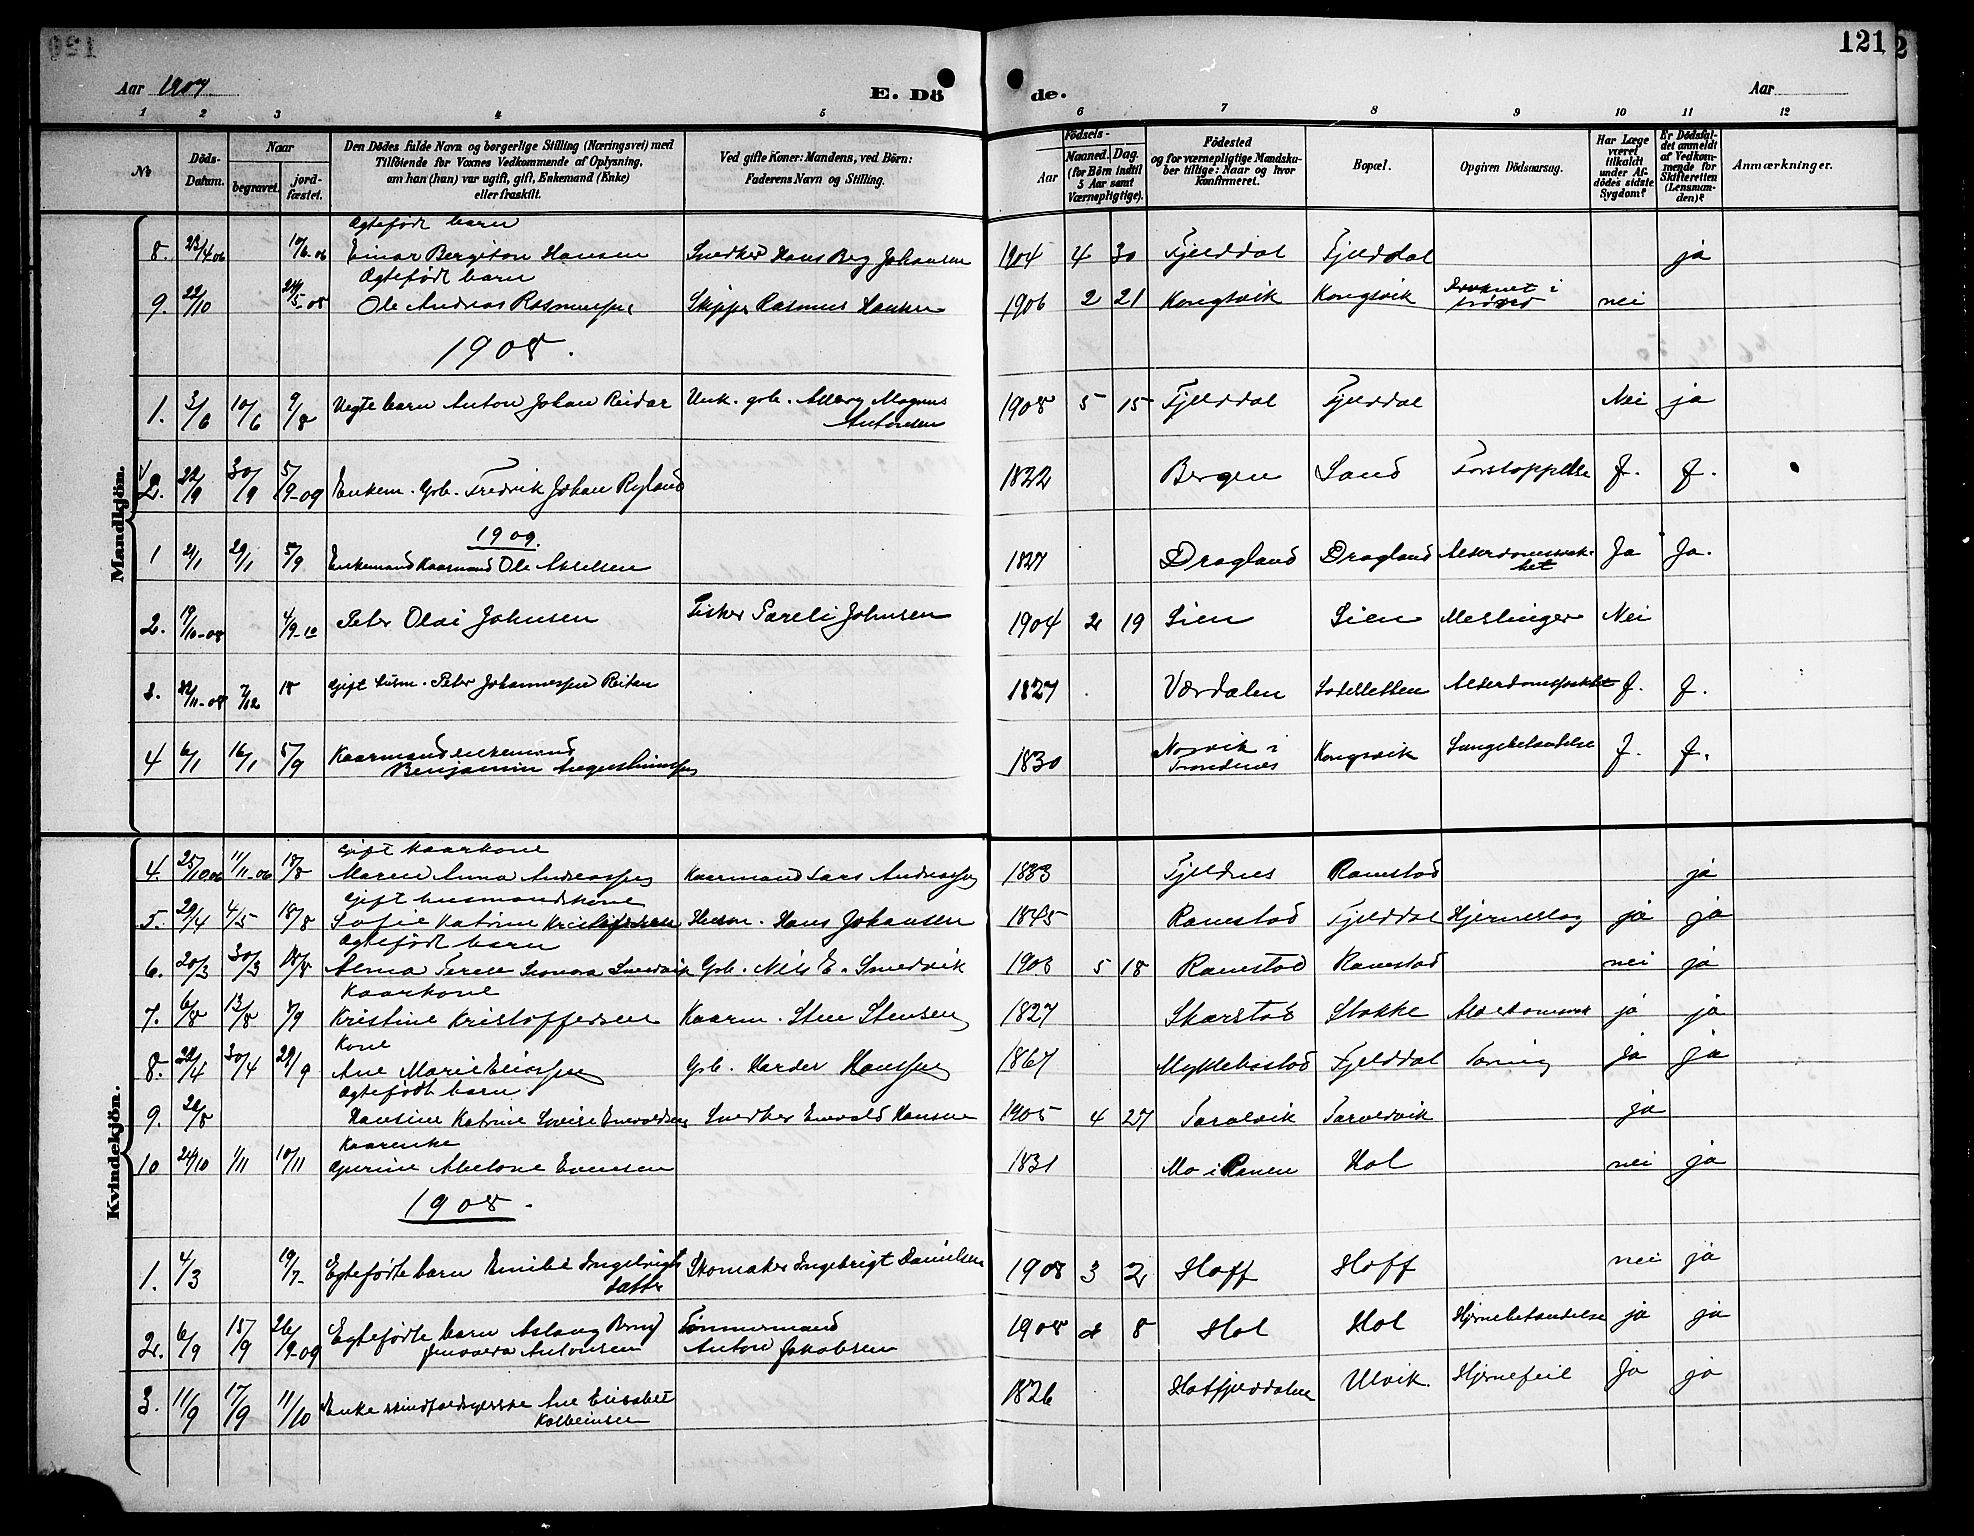 121
Aar 1907.
E. Döde.
Aar
1 2 3 4 5 6 7 8 9 10 11 12
No
Döds-Datum.
Naar
begravet.
jord-fæstet.
Den Dödes fulde Navn og borgerlige Stilling (Næringsvei) med
Tilföiende for Voxnes Vedkommende af Oplysning,
om han (hun) var ugift, gift, Enkemand (Enke)
eller fraskilt.
Ved gifte Koner: Mandens, ved Börn:
Faderens Navn og Stilling.
Födsels-
Aar
Maaned. Dag.
(for Börn indtil
5 Aar samt
Værnepligtige).
Födested
og for værnepligtige Mandsku-
ber tillige: Naar og hvor
konfirmeret.
Bopæl.
Opgiven Dödsaarsag.
Har Læge
været
tilkaldt
under Af-
dödes sidste
Sygdom?
Er Dödsfal-
det anmeldt
af Vedkom-
mende for
Skifteretten
(Lensman-
den)?
Anmærkninger.
Mandkjön.
Ægtefødt barn
8. 23/4 06 Einar Bergiton Hansen Snedker Hans Berg Johansen 1904 4 30 Fjelddal Fjelddal ja
Ægtefødt barn
9. 22/10 Ole Andreas Rasmussen Skipper Rasmus Hansen 1906 2 21 Kongsvik Kongsvik Druknet i nei
1908.
1. 3/6 10/6 9/8 Uegte barn Anton Johan Reidar Unk. grb. Magnus Antonsen 1908 5 15 Fjelddal Fjelddal Nei ja
2. 22/9 30/9 5/9-09 Enkem. Grb. Fredrik Johan Ryland 1822 Bergen Sand Forstoppelse J. J.
1909.
1 21/1 29/1 5/9 Enkemand Kaarmand Ole Axelsen 1827 Dragland Dragland Alderdomssvak-
het Ja Ja.
2. 19/10-08 4/9-10 Peter Olai Johnsen Fisker Pareli Johnsen 1904 2 19 Lien Lien Meslinger Nei
3. 22/11-08 7/12 18 Gift husm. Peter Johannessen Reitan 1827 Værdalen Sadelletten Alderdomssvakhet J. J.
4 6/1 16/1 5/9 Kaarmand enkemand
Benjamin Augustinussen 1830 Norvik i
Trondenes Kongsvik Lungebetændelse J. J.
Kvindekjön.
gift kaarkone
4. 25/10 06 11/11-06 18/8 Maren Anna Andreassen Kaarmand Lars Andreassen 1833 Fjeldnes Ranestad ja
gift husmandskone
5. 29/4 4/5 18/8 Sofie Katrine Kristoffersen Husm. Hans Johansen 1845 Ranestad Fjelddal Hjerneslag ja ja
Ægtefødt barn
6. 20/3 30/3 18/8 Alma Terese Leonora Smedvik Grb. Nils E. Smedvik 1903 5 18 Ranestad Ranestad nei ja
Kaarkone
7. 6/8 13/8 8/9 Kristine Kristoffersen Kaarm. Sten Stensen 1827 Skarstad Stokke ja ja
Kone
8. 22/4 30/4 29/9 Ane Marie Grb. Harder Hanssen 1867 Myklebostad Fjelddal Tæring ja ja
Ægtefødt barn
9. 22/8 Hansine Katrine Lovise Enevoldsen Snedker Enevold Hansen 1905 4 27 Taralvik Taraldvik ja
Kaarenke
10 24/10 1/11 10/11 Gurine Abelone Evensen 1831 Mo i Ranen Hol nei ja
1908.
1. 4/3 19/7- Egtefødte barn Emilie Ingebrigts
datter Skomaker Ingebrigt Danielsen 1908 3 2 Hoff Hoff nei ja
2. 6/9 15/9 26/9-09 Egtefødte barn Aslaug
Antonsen Tømmermand
Anton Jakobsen 1908 8 Hol Hol Hjernebetændelse ja ja
3. 11/9 17/9 11/10 Enke Ane Elisabet
Kolbeinsen 1826 Hatfjelddalen Ulvik. Hjernefeil Ja ja